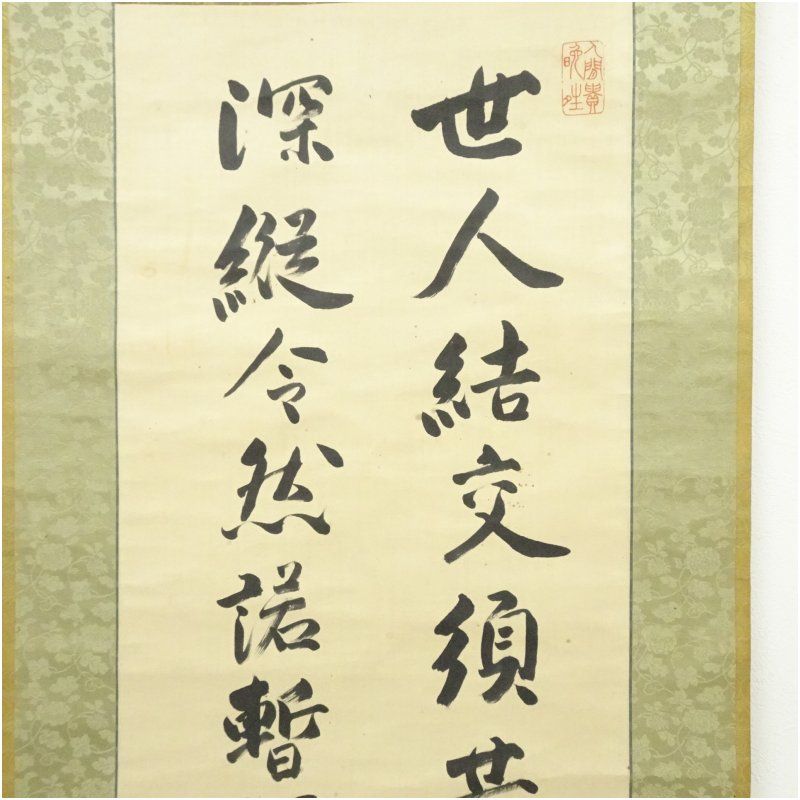 世人結交須
深縱令然諾暫